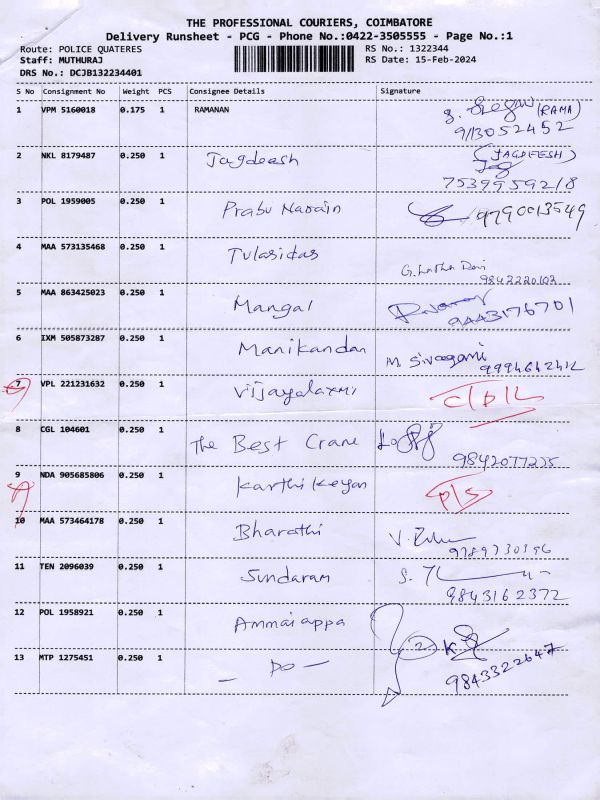 THE PROFESSIONAL COURIERS, COIMBATORE
Delivery Runsheet - PCG - Phone No.:0422-3505555 - Page No.:1
Route: POLICE QUATERES RS No.: 1322344
Staff: MUTHURAJ RS Date: 15-Feb-2024
DRS No.: DCJB132234401
S No Consignment No Weight PCS Consignee Details Signature
1 VPM 5160018 0.175 1 RAMANAN (RAMA)
9113052452
2 NKL 8179487 0.250 1 Jagdeesh (JAGDEESH)
7539959218
3 POL 1959005 0.250 1 Prabu Narain 9790013549
4 MAA 573135468 0.250 1 Tulasidas G. Latha Devi
9842220102
5 MAA 863425023 0.250 1 Mangal
9443176701
6 IXM 505873287 0.250 1 Manikandan M. Sivagami
9994642412
7 VPL 221231632 0.250 1 Vijayalaxmi C/D/L
8 CGL 104601 0.250 1 The Best Crane
9842077235
9 NDA 905685806 0.250 1 Karthikeyan P/S
10 MAA 573464178 0.250 1 Bharathi V.
9789730396
11 TEN 2096039 0.250 1 Sundaram S.
9843162372
12 POL 1958921 0.250 1 Ammaiappa 2 K
13 MTP 1275451 0.250 1 — DO — 9843322647